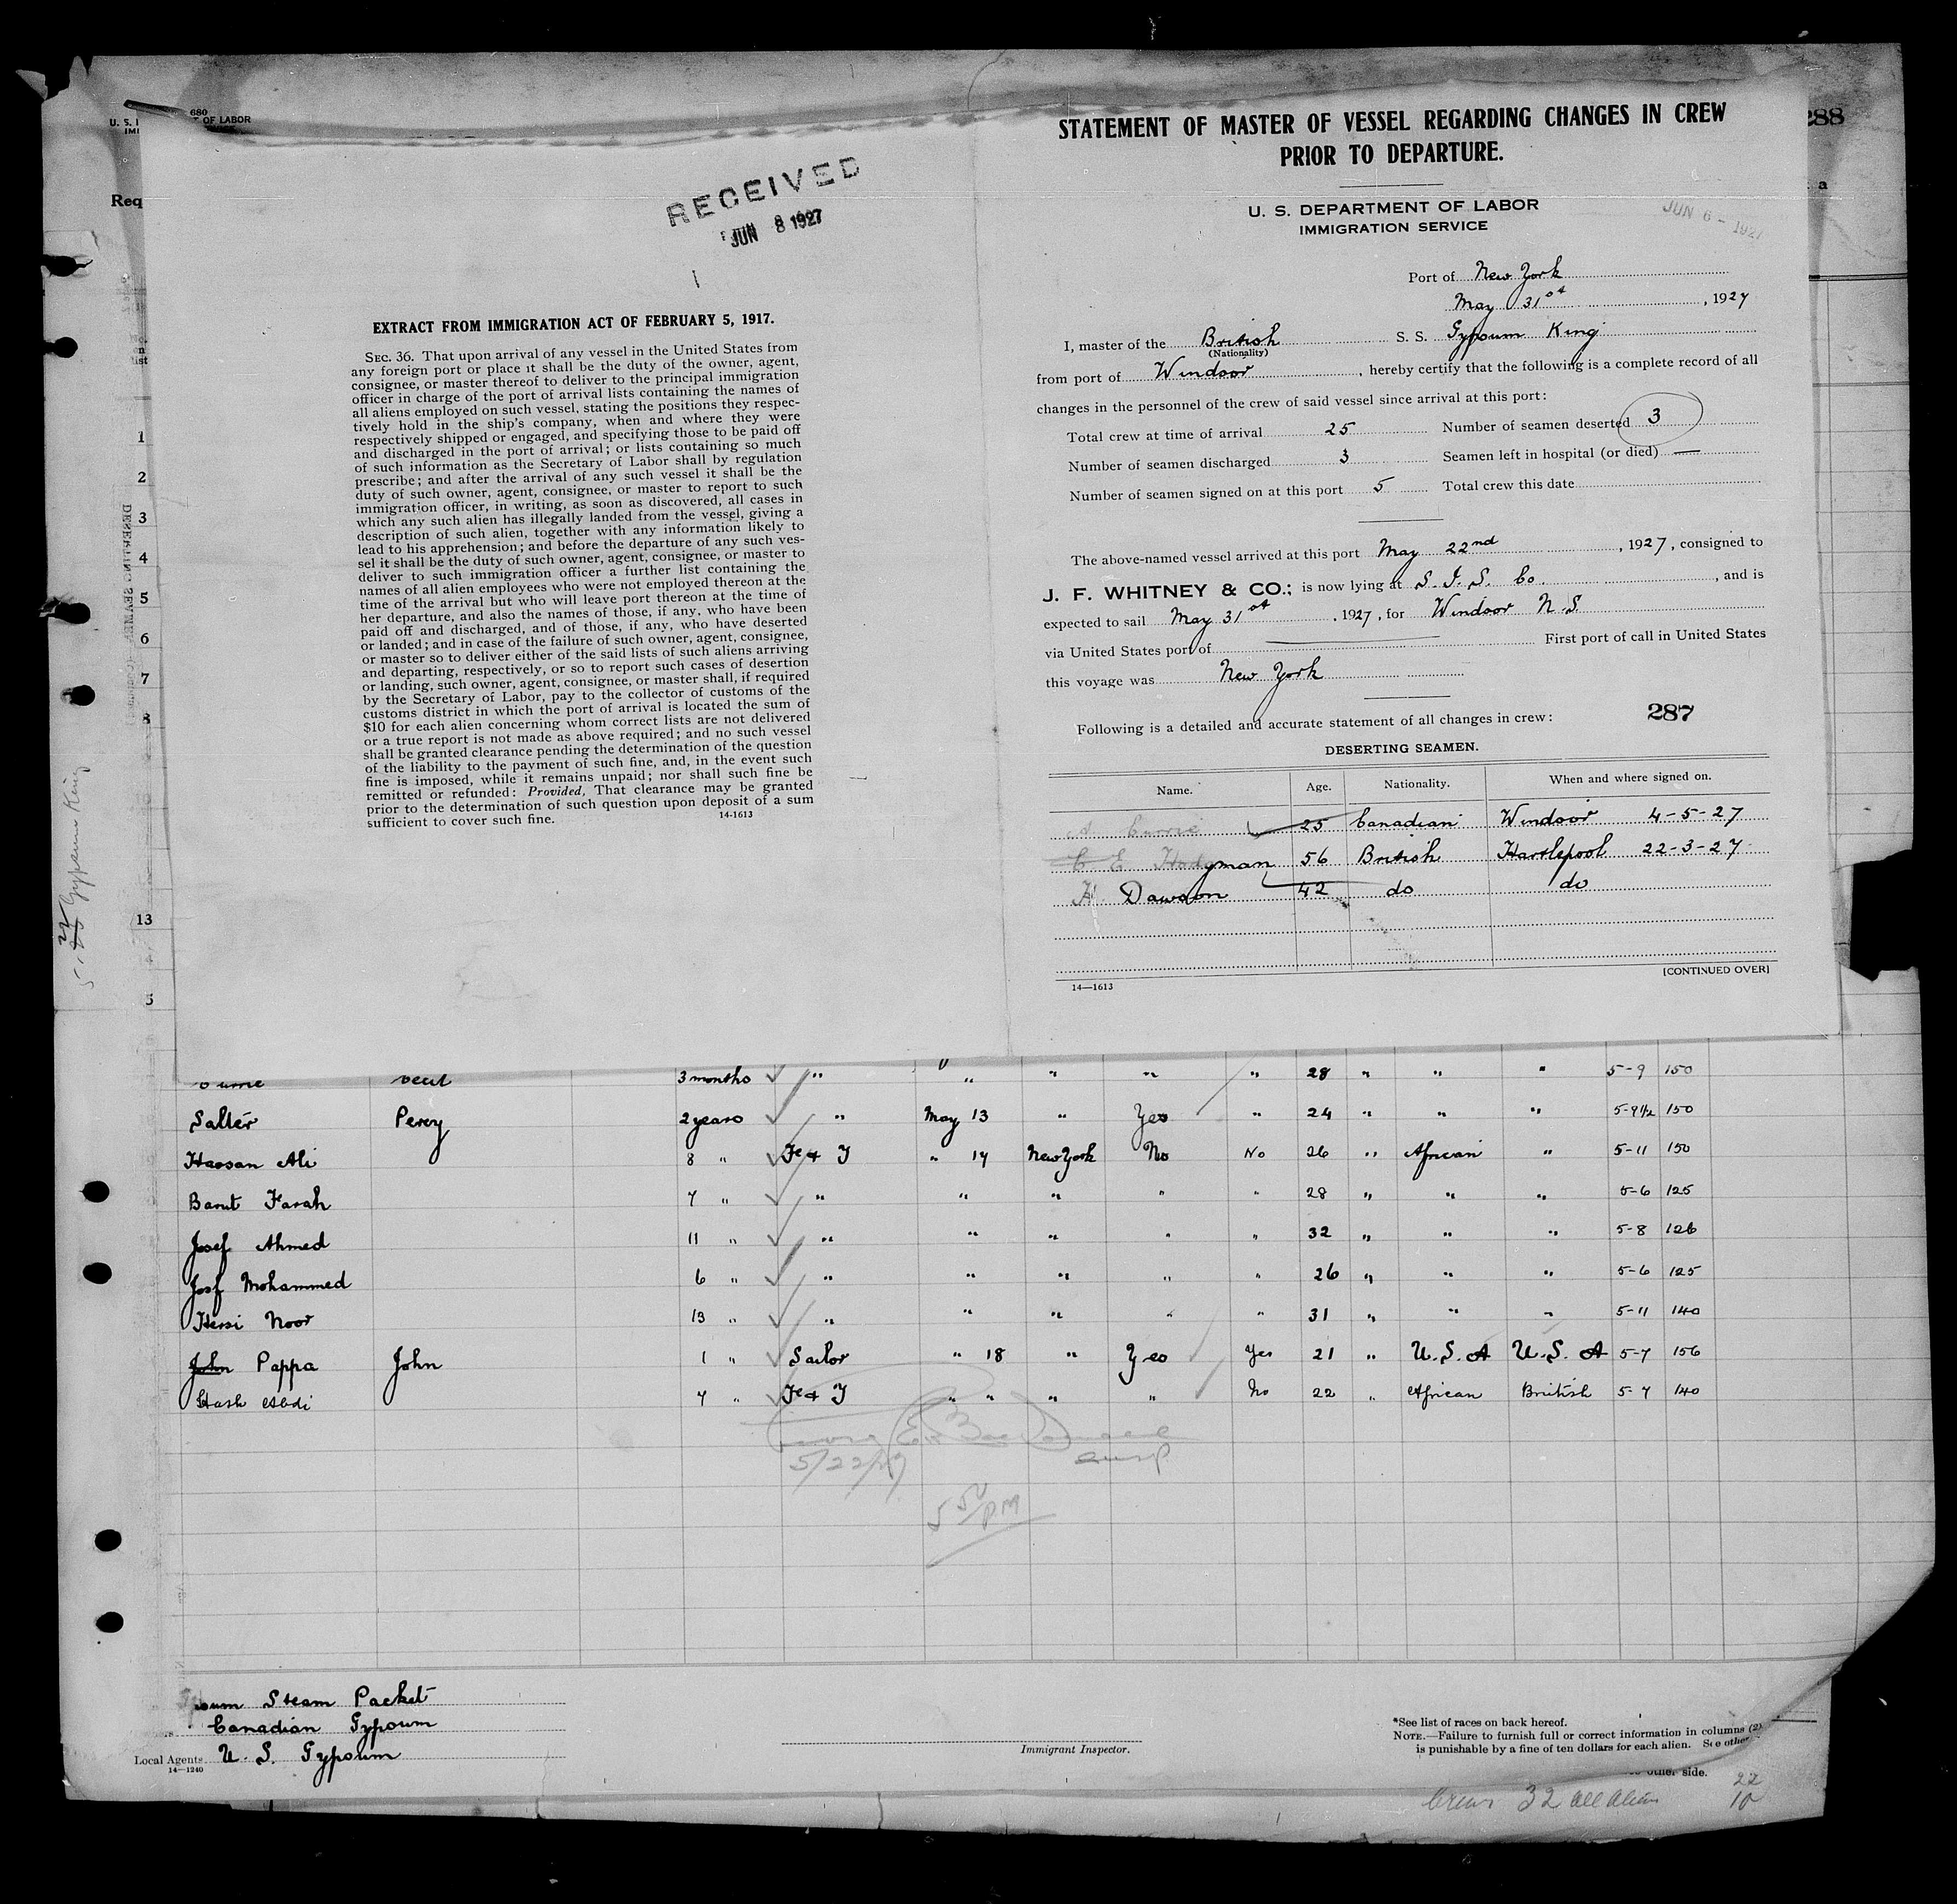 680
U. S. 
OF LABOR
288
Req
a
RECEIVED
JUN 8 1927
EXTRACT FROM IMMIGRATION ACT OF FEBRUARY 5, 1917.
SEC. 36. That upon arrival of any vessel in the United States from
any foreign port or place it shall be the duty of the owner, agent,
consignee, or master thereof to deliver to the principal immigration
officer in charge of the port of arrival lists containing the names of
all aliens employed on such vessel, stating the positions they respec-
tively hold in the ship's company, when and where they were
respectively shipped or engaged, and specifying those to be paid off
and discharged in the port of arrival; or lists containing so much
of such information as the Secretary of Labor shall by regulation
prescribe; and after the arrival of any such vessel it shall be the
duty of such owner, agent, consignee, or master to report to such
immigration officer, in writing, as soon as discovered, all cases in
which any such alien has illegally landed from the vessel, giving a
description of such alien, together with any information likely to
lead to his apprehension; and before the departure of any such ves-
sel it shall be the duty of such owner, agent, consignee, or master to
deliver to such immigration officer a further list containing the
names of all alien employees who were not employed thereon at the
time of the arrival but who will leave port thereon at the time of
her departure, and also the names of those, if any, who have been
paid off and discharged, and of those, if any, who have deserted
or landed; and in case of the failure of such owner, agent, consignee,
or master so to deliver either of the said lists of such aliens arriving
and departing, respectively, or so to report such cases of desertion
or landing, such owner, agent, consignee, or master shall, if required
by the Secretary of Labor, pay to the collector of customs of the
customs district in which the port of arrival is located the sum of
$10 for each alien concerning whom correct lists are not delivered
or a true report is not made as above required; and no such vessel
shall be granted clearance pending the determination of the question
of the liability to the payment of such fine, and, in the event such
fine is imposed, while it remains unpaid; nor shall such fine be
remitted or refunded: Provided, That clearance may be granted
prior to the determination of such question upon deposit of a sum
sufficient to cover such fine.
14-1613
STATEMENT OF MASTER OF VESSEL REGARDING CHANGES IN CREW
PRIOR TO DEPARTURE.
U. S. DEPARTMENT OF LABOR
IMMIGRATION SERVICE
JUN 6 - 1927
Port of New York
May 31st, 1927
I, master of the British S. S. Gypsum King
(Nationality)
from port of Windsor, hereby certify that the following is a complete record of all
changes in the personnel of the crew of said vessel since arrival at this port:
Total crew at time of arrival 25 Number of seamen deserted 3
Number of seamen discharged 3 Seamen left in hospital (or died) —
Number of seamen signed on at this port 5 Total crew this date
The above-named vessel arrived at this port May 22nd, 1927, consigned to
J. F. WHITNEY & CO.; is now lying at S. I. S. Co., and is
expected to sail May 31st, 1927, for Windsor N. S
via United States port of First port of call in United States
this voyage was New York
Following is a detailed and accurate statement of all changes in crew:
287
DESERTING SEAMEN.
Name. Age. Nationality. When and where signed on.
A Currie 25 Canadian Windsor 4-5-27
C E Hodgman 56 British Hartlepool 22-3-27
H. Dawson 42 do do
[CONTINUED OVER]
14—1613
1
2
3
4
5
6
7
8
13
5
Gypsum King
Currie Cecil 3 months " " " " " 28 " " " 5-9 150
Salter Percy 2 years " May 13 " Yes " 24 " " " 5-9 1/2 150
Hassan Ali 8 " F & T " 14 New York No No 26 " African " 5-11 150
Barut Farah 7 " " " " " " 28 " " " 5-6 125
Josef Ahmed 11 " " " " " " 32 " " " 5-8 126
Josf Mohammed 6 " " " " " " 26 " " " 5-6 125
Hersi Noor 13 " " " " " " 31 " " " 5-11 140
John Pappa John 1 " Sailor " 18 " Yes Yes 21 " U. S. A U. S. A 5-7 156
Hash Abdi 7 " F & T " " " " No 22 " African British 5-7 140
5/22/27
5 50/PM
Steam Packet
Canadian Gypsum
Local Agents U. S. Gypsum
14—1240
Immigrant Inspector.
*See list of races on back hereof.
NOTE.—Failure to furnish full or correct information in columns (2)
is punishable by a fine of ten dollars for each alien. See other
other side.
Crew 32 all alien
22
10